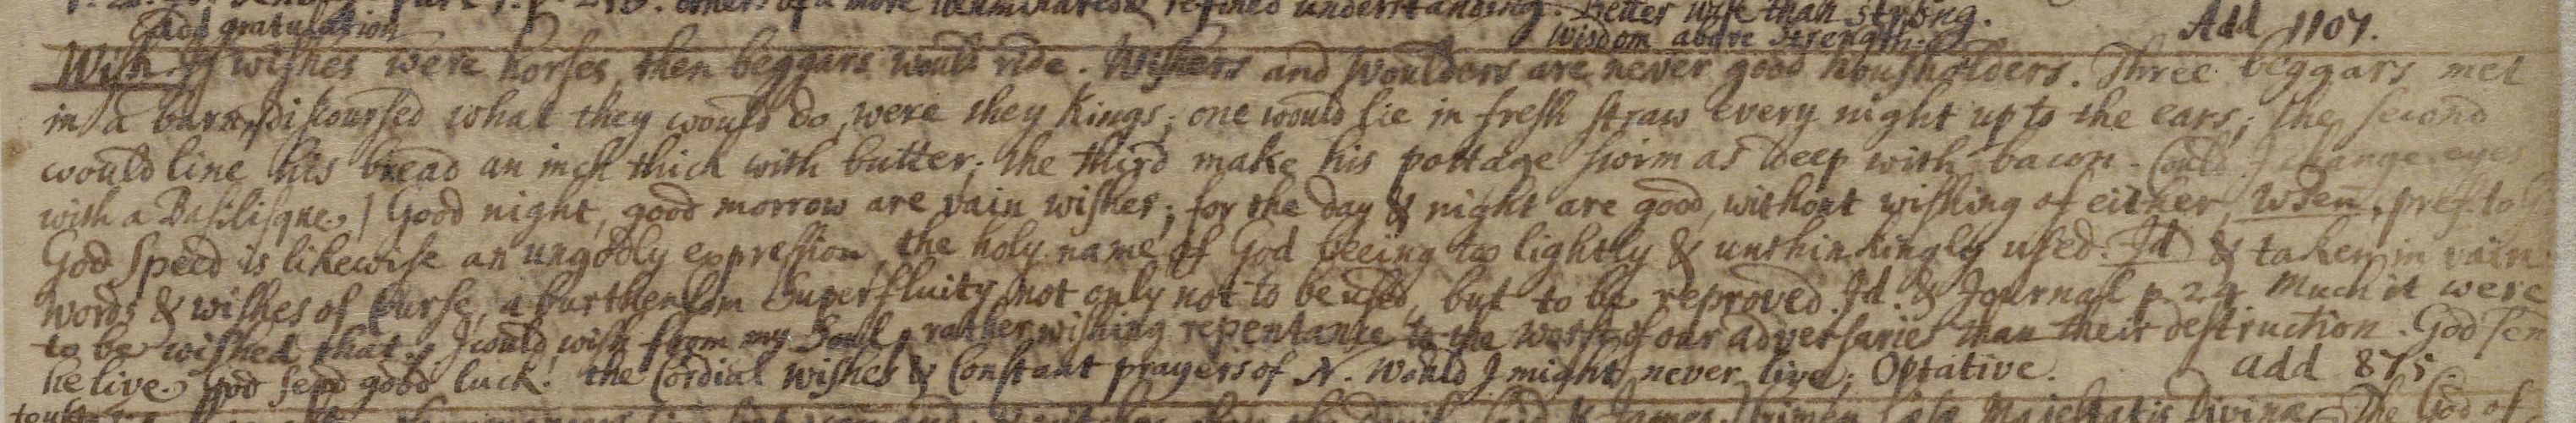 others of a more illuminated & refined understanding. Better wise than strong.
gratulation wisdom above strength. Add 1107.
Wish. If wishes were horses, then beggars would ride. Wishers and Woulders are never good housholders. Three beggars met
in a barn, discoursed what they would do, were they Kings; one would lie in fresh straw every night up to the ears; the second
would line his bread an inch thick with butter; the third make his pottage swim as deep with bacon. Could I change eyes
with a Basilisque. | Good night, good morrow are vain wishes; for the day & night are good, without wishing of either,
God speed is likewise an ungodly expression, the holy name of God beeing too lightly & unthinkingly used. Id & taken in vain
words & wishes of Curse, a burthensom Superfluity not only not to be used, but to be reproved. Id. & Journal p. 24. Much it were
to be wished that. I could wish from my Soul, rather wishing repentance to the worst of our adversaries than their destruction. God sen
he live. God send good luck. the Cordial wishes & Constant prayers of N. Would I might never live; Optative. add 875.
Majestatis Divinæ. The God of